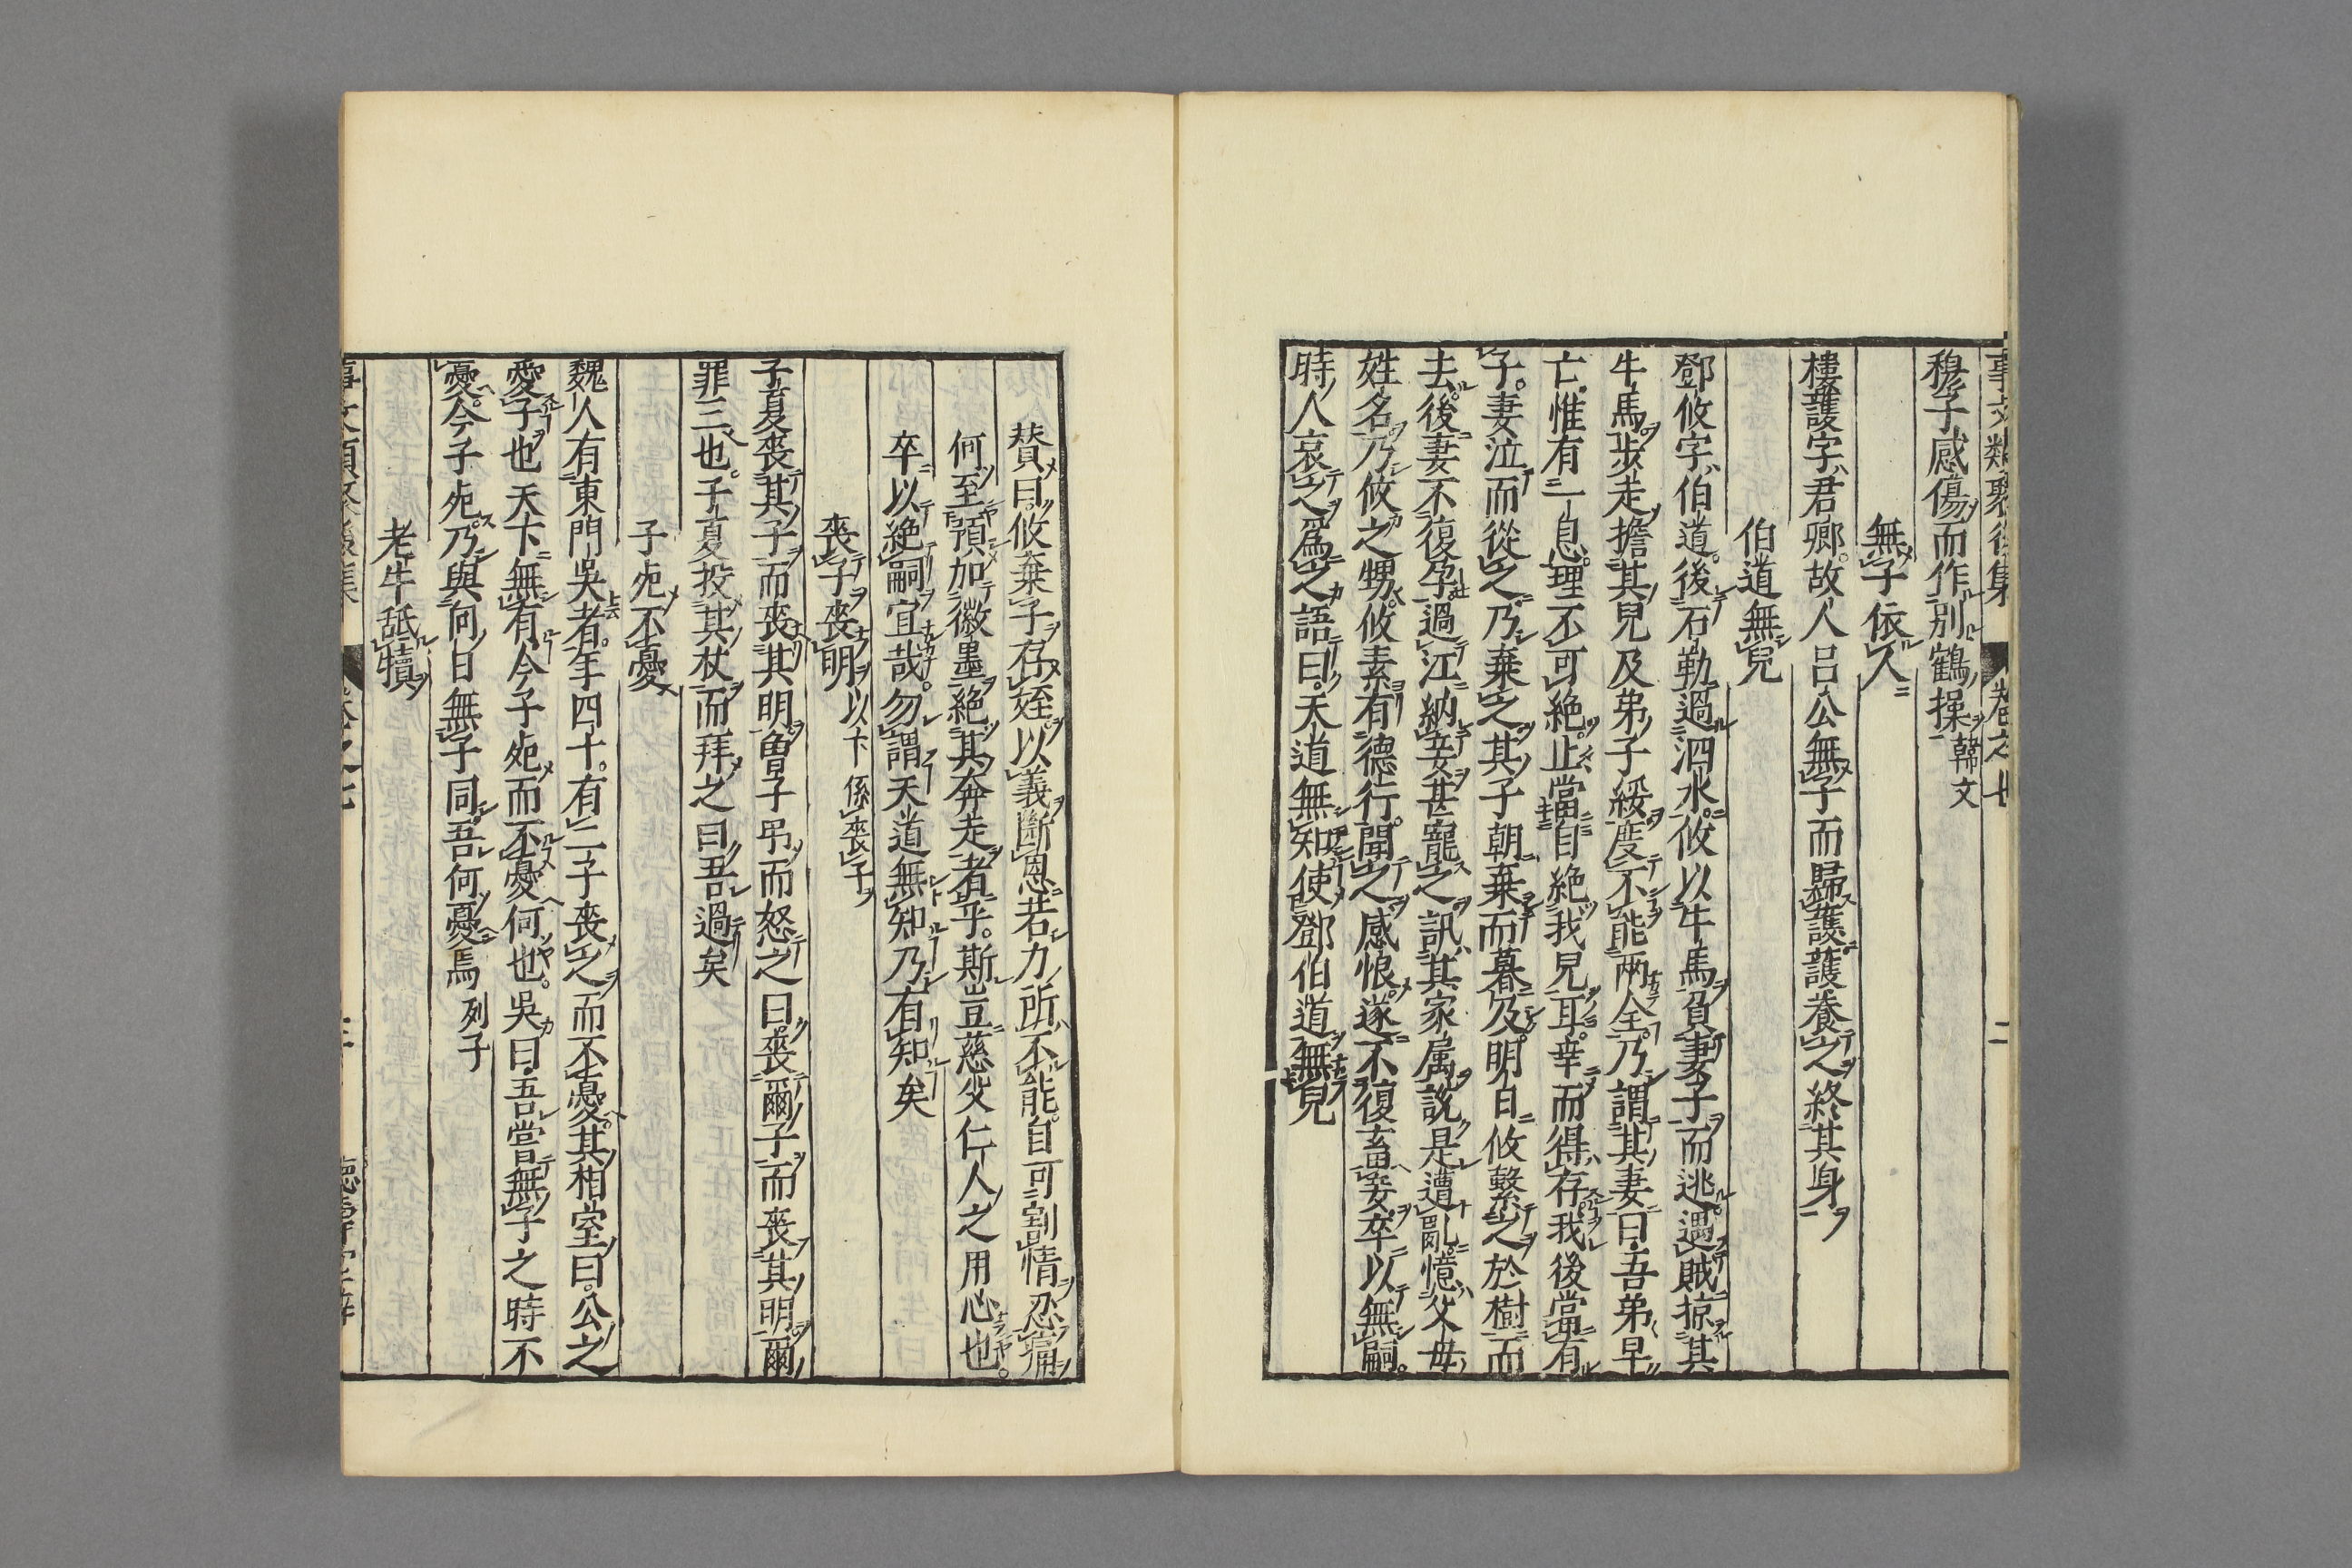 事文類聚後集 卷之七 二
穆子感傷而作別鶴操韓文
無子依人
樓護字君卿故人呂公無子而歸護護養之終其身
伯道無兒
鄧攸字伯道後石勒過泗水攸以牛馬負妻子而逃遇賊掠其
牛馬步走擔其兒及弟子綏度不能兩全乃謂其妻曰吾弟早
亡惟有一息理不可絶止當自絶我兒耳幸而得存我後當有
子妻泣而從之乃棄之其子朝棄而暮及明日攸繫之於樹而
去後妻不復孕過江納妾甚寵之訊其家属說是遭亂憶父母
姓名乃攸之甥攸素有德行聞之感恨遂不復畜妾卒以無嗣
時人哀之爲之語曰天道無知使鄧伯道無兒
賛曰攸棄子存姪以義斷恩若力所不能自可割情忍痛
何至預加徽墨絶其奔走者乎斯豈慈父仁人之用心也
卒以絶嗣宜哉勿謂天道無知乃有知矣
喪子喪明以下係喪子
子夏喪其子而喪其明曽子吊而怒之曰喪爾子而喪其明爾
罪三也子夏投其杖而拜之曰吾過矣
子死不憂
魏人有東門吳者年四十有二子喪之而不憂其相室曰公之
愛子也天下無有今子死而不憂何也吳曰吾嘗無子之時不
憂今子死乃與向日無子同吾何憂焉列子
老牛舐犢